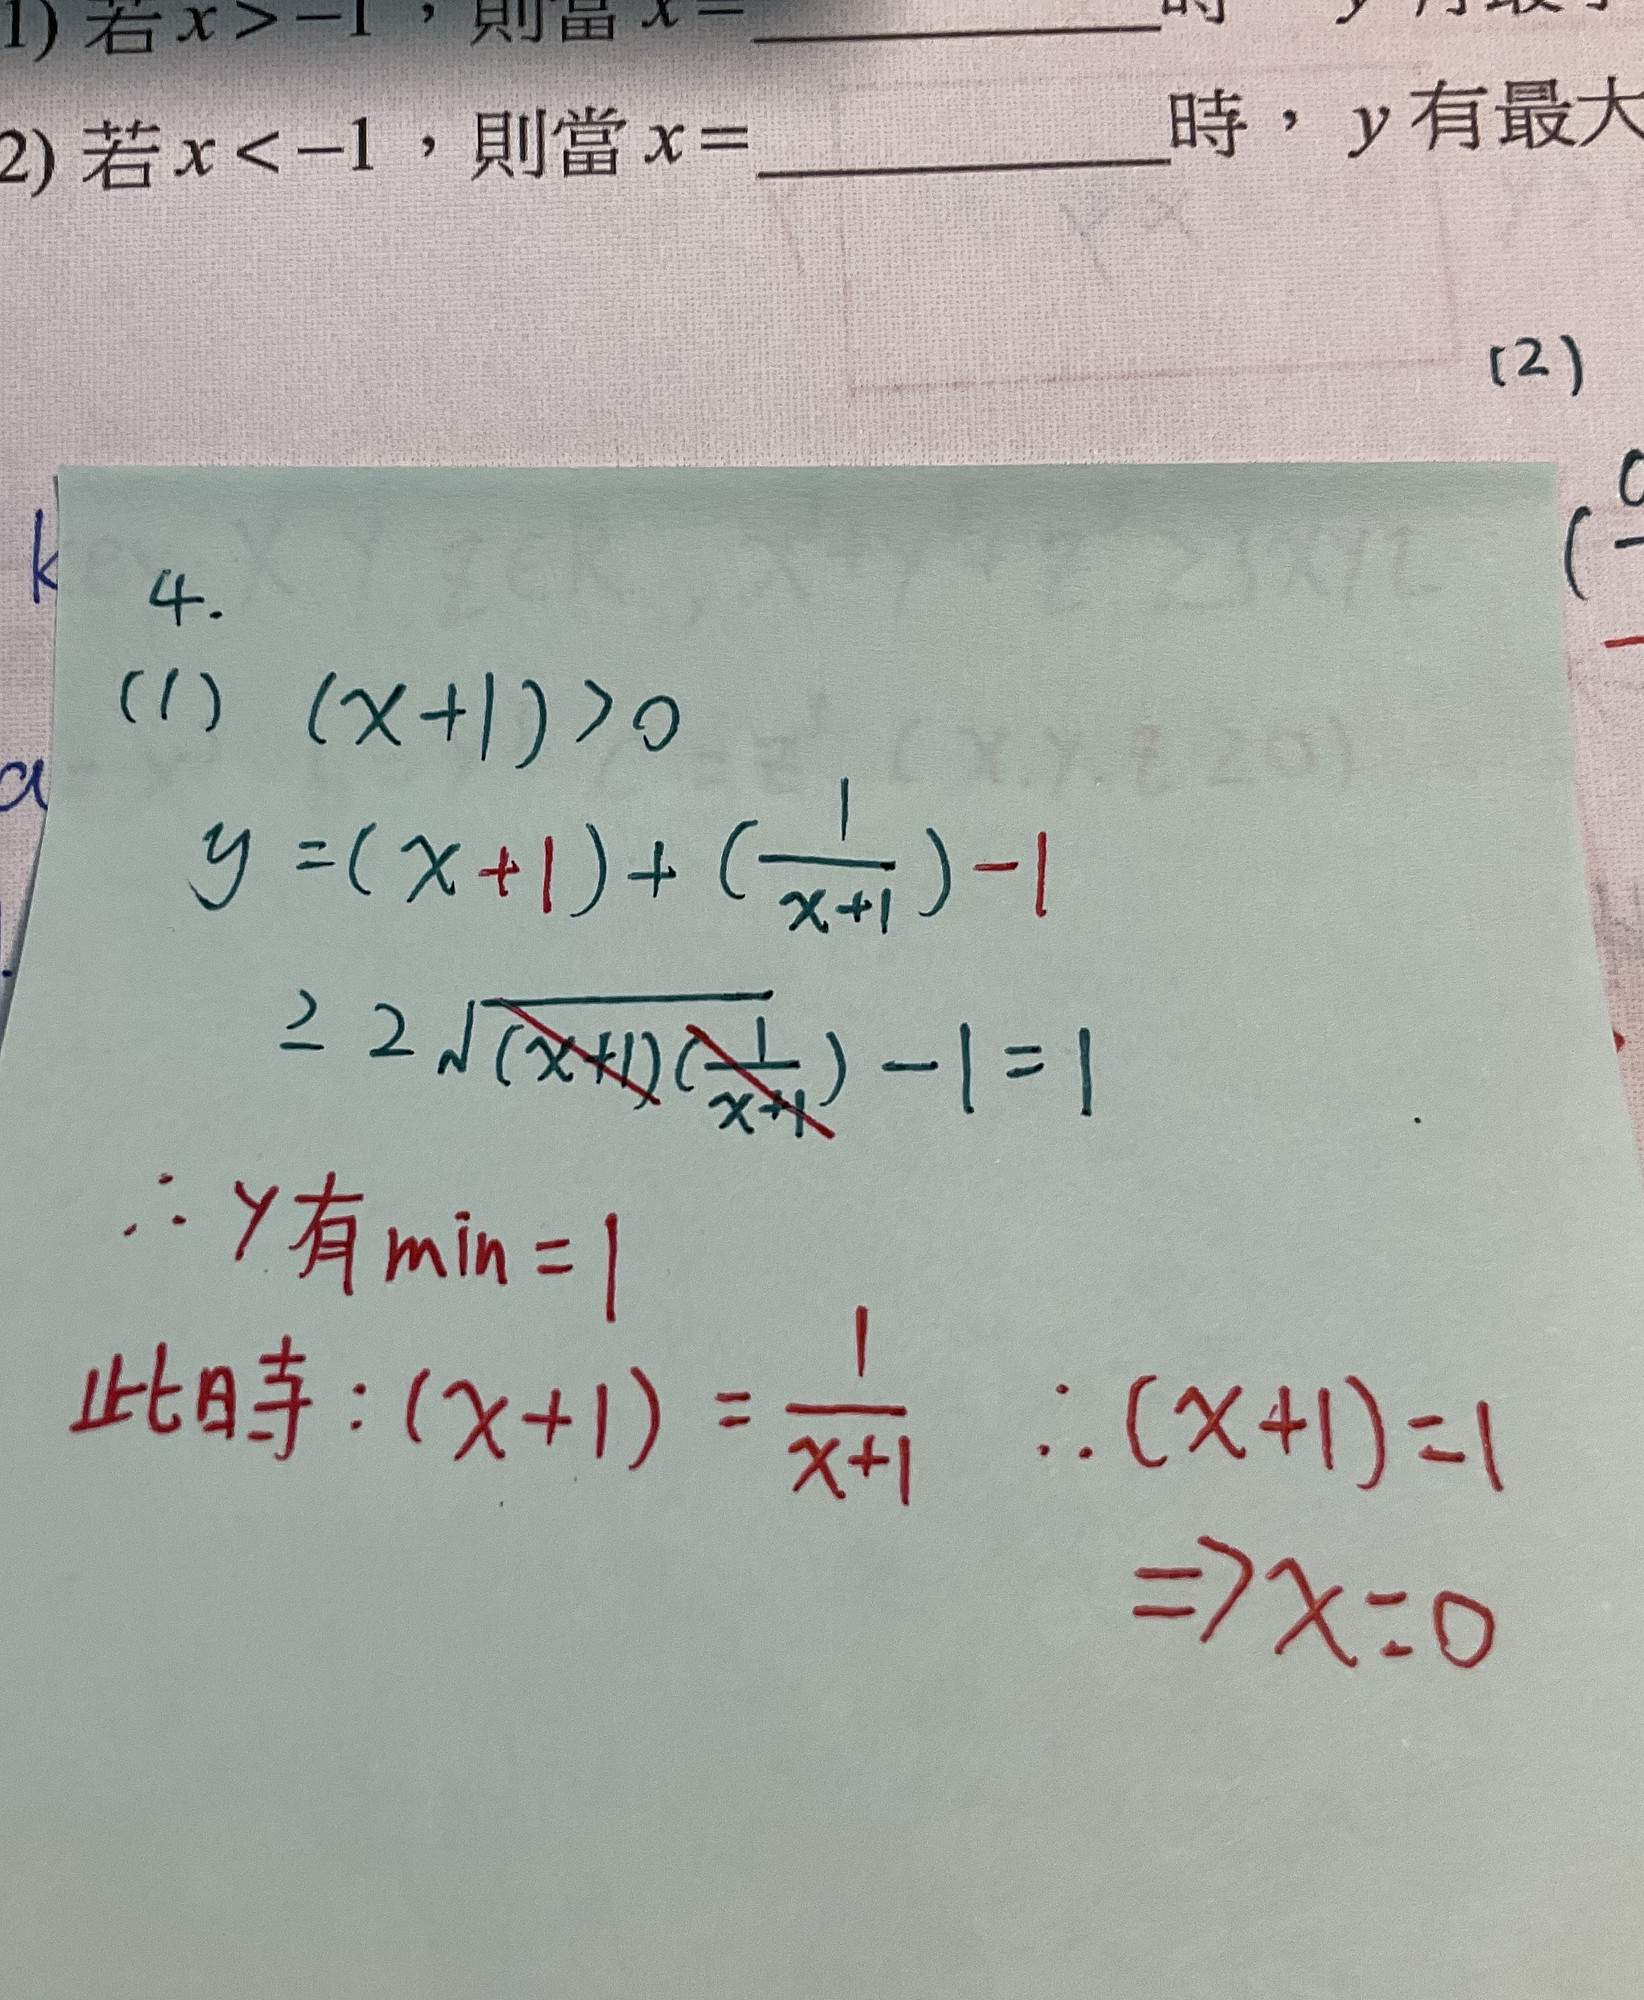 1) 若 x > -1，則當 x = ________ 時
2) 若 x < -1，則當 x = ________ 時，y 有最大
(2)
4.
(1) (x+1)>0
y = (x+1) + (1/(x+1)) - 1
≥ 2√((x+1)(1/(x+1))) - 1 = 1
∴ y有min = 1
此時：(x+1) = 1/(x+1) ∴(x+1)=1
=> x=0